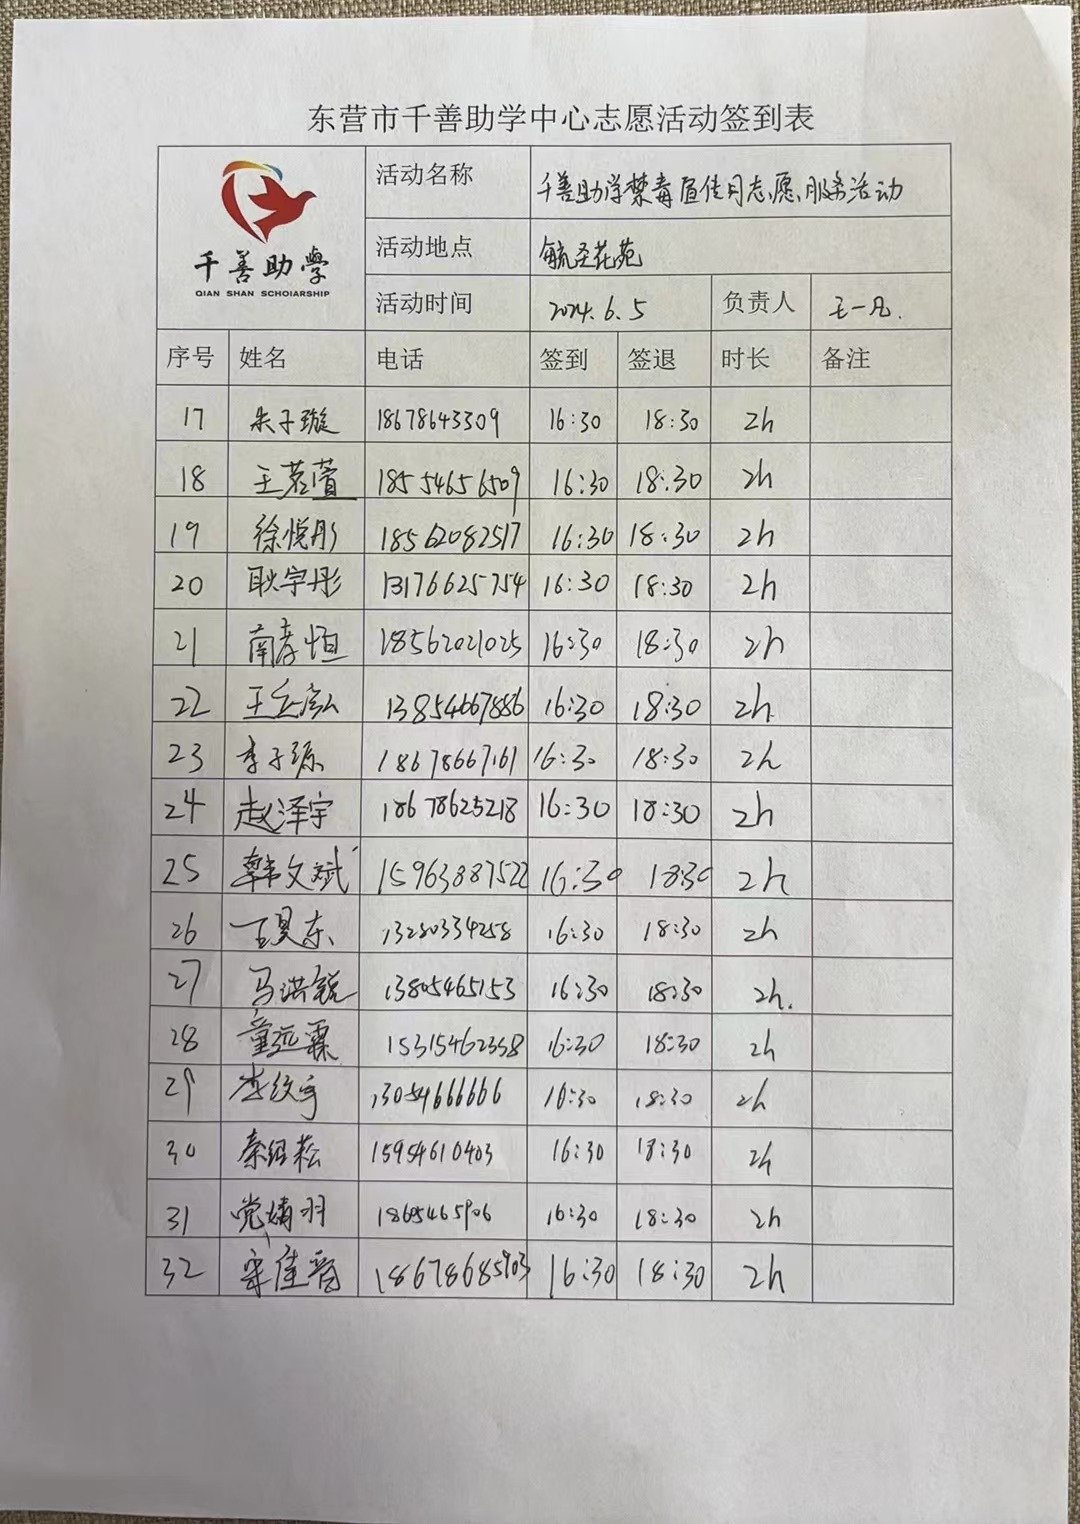 东营市千善助学中心志愿活动签到表
千善助學
QIAN SHAN SCHOIARSHIP
活动名称 千善助学禁毒宣传月志愿服务活动
活动地点 毓圣花苑
活动时间 2024.6.5 负责人 王一凡.
序号 姓名 电话 签到 签退 时长 备注
17 朱子璇 18678643309 16:30 18:30 2h
18 王若萱 18554656509 16:30 18:30 2h
19 徐悦彤 18562082517 16:30 18:30 2h
20 耿宇彤 13176625754 16:30 18:30 2h
21 南孝恒 18562021025 16:30 18:30 2h
22 王 13854667886 16:30 18:30 2h
23 李子源 18678667161 16:30 18:30 2h
24 赵泽宇 18678625218 16:30 18:30 2h
25 韩文斌 15963887522 16:30 18:30 2h
26 王昊东 13280334258 16:30 18:30 2h
27 马洪锐 13805465153 16:30 18:30 2h.
28 童远霖 15315462358 16:30 18:30 2h
29 李纹宇 13054666666 16:30 18:30 2h
30 秦绍松 15954610403 16:30 18:30 2h
31 党婧羽 18605465906 16:30 18:30 2h
32 宋佳音 18678685903 16:30 18:30 2h